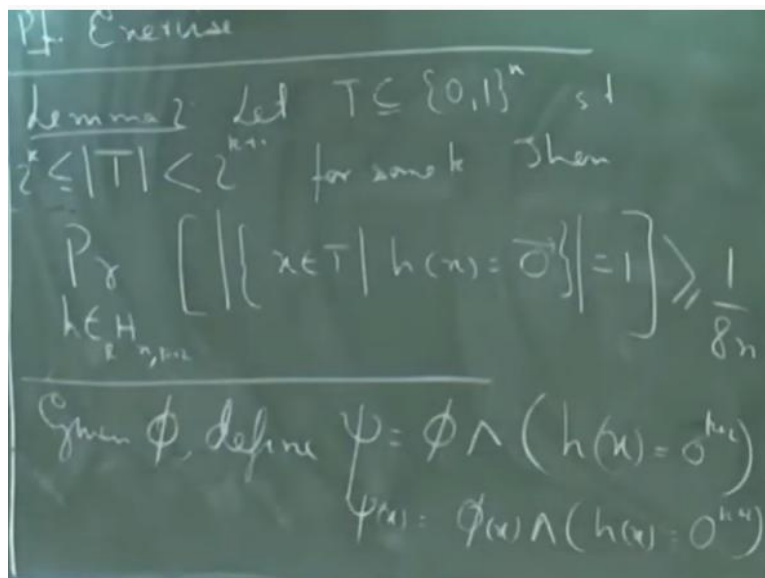 Pf. Exercise
Lemma 2 Let T ⊆ {0,1}ⁿ st
2ᵏ ≤ |T| < 2ᵏ⁺¹ for some k Then
Pr [|{x∈T | h(x) = 0⃗}| = 1] ⩾ 1/8n
h∈_R H_{n,k+2}
Given ϕ, define ψ = ϕ ∧ (h(x) = 0ᵏ⁺²)
ψ(x) = ϕ(x) ∧ (h(x) = 0ᵏ⁺²)